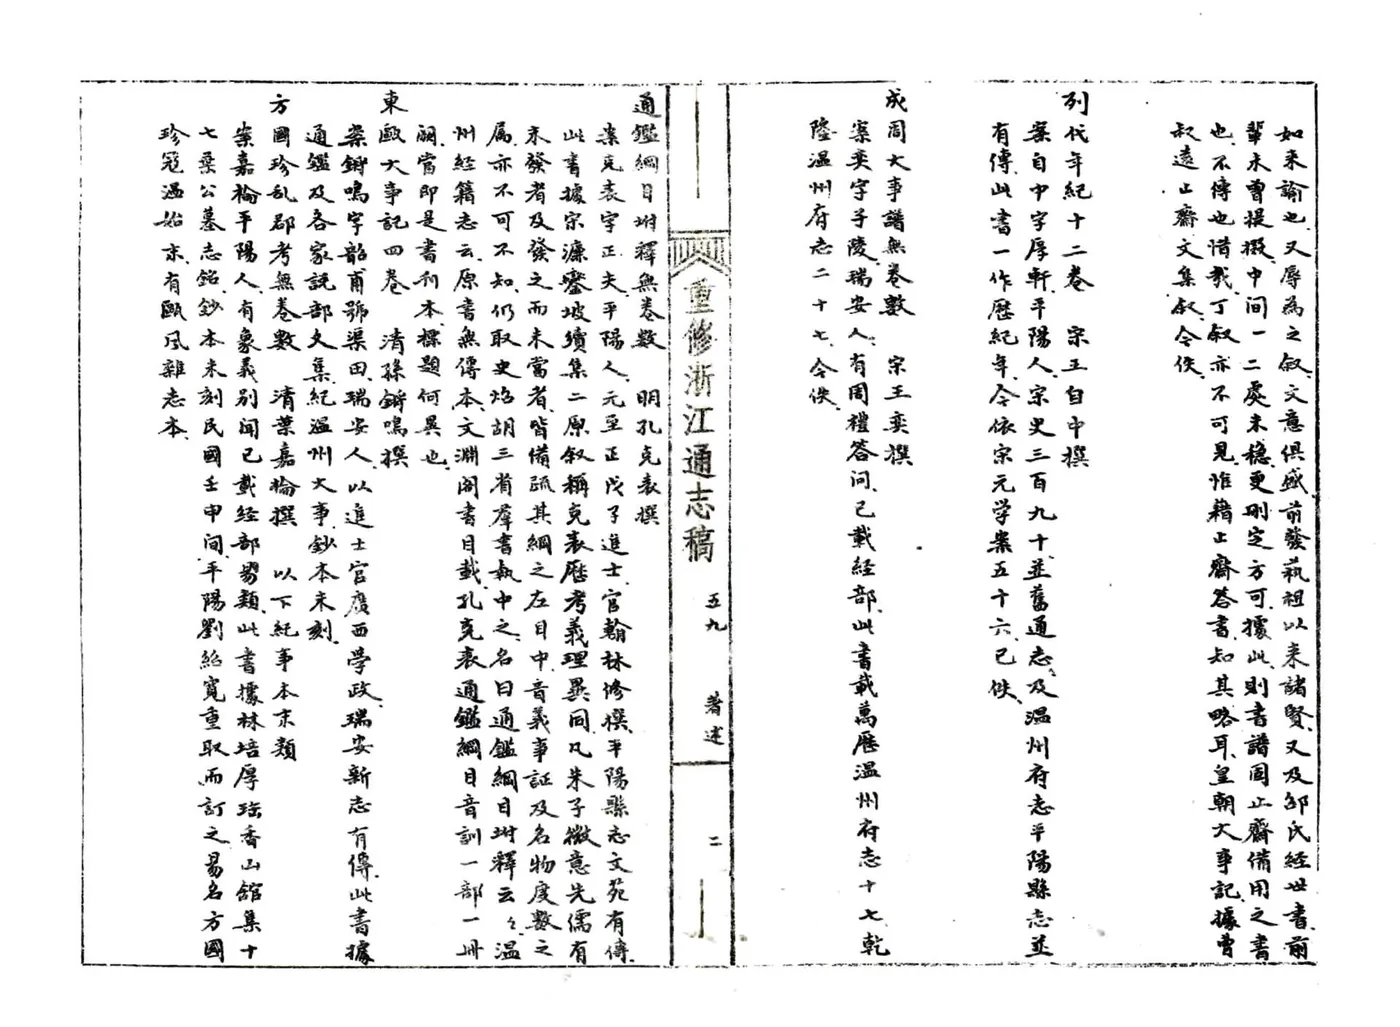 如来諭也又辱為之叙文意俱盛前發蓺祖以来諸賢又及邹氏經世書前
輩未曾提撥中間一二處未穩更刪定方可據此則書譜固止齋備用之書
也不傳也惜哉丁叙亦不可見惟藉止齋答書知其略耳皇朝大事記據曹
叔遠止齋文集叙今佚
列代年紀十二卷　宋王自中撰
案自中字厚軒平陽人宋史三百九十並舊通志及温州府志平陽縣志並
有傳此書一作歷紀年今依宋元学案五十六已佚
成周大事譜無卷數　宋王奕撰
案奕字子陵瑞安人有周禮答问已載經部此書載萬歷温州府志十七乾
隆温州府志二十七今佚
重修浙江通志稿
五九　著述
二
通鑑綱目坿釋無卷數　明孔克表撰
案克表字正夫平陽人元至正戊子進士官翰林修撰平陽縣志文苑有傳
此書據宋濂鑾坡續集二原叙稱克表歷考義理異同凡朱子微意先儒有
未發者及發之而未當者皆備疏其綱之左目中音義事証及名物度数之
属亦不可不知仍取史炤胡三省羣書執中之名曰通鑑綱目坿釋云々温
州經籍志云原書無傳本文淵阁書目載孔克表通鑑綱目音訓一部一册
阙當即是書刊本標題何異也
東甌大事記四卷　清孫鏘鳴撰
案鏘鳴字韶甫號渠田瑞安人以進士官廣西學政瑞安新志有傳此書據
通鑑及各家説部文集紀温州大事鈔本未刻
方國珍乱郡考無卷數　清葉嘉棆撰　以下紀事本末類
案嘉棆平陽人有象義别闻已載經部易類此書據林培厚琭香山館集十
七桑公墓志銘鈔本未刻民國壬申间平陽劉紹寬重取而訂之易名方國
珍冦温始末有甌风雜志本